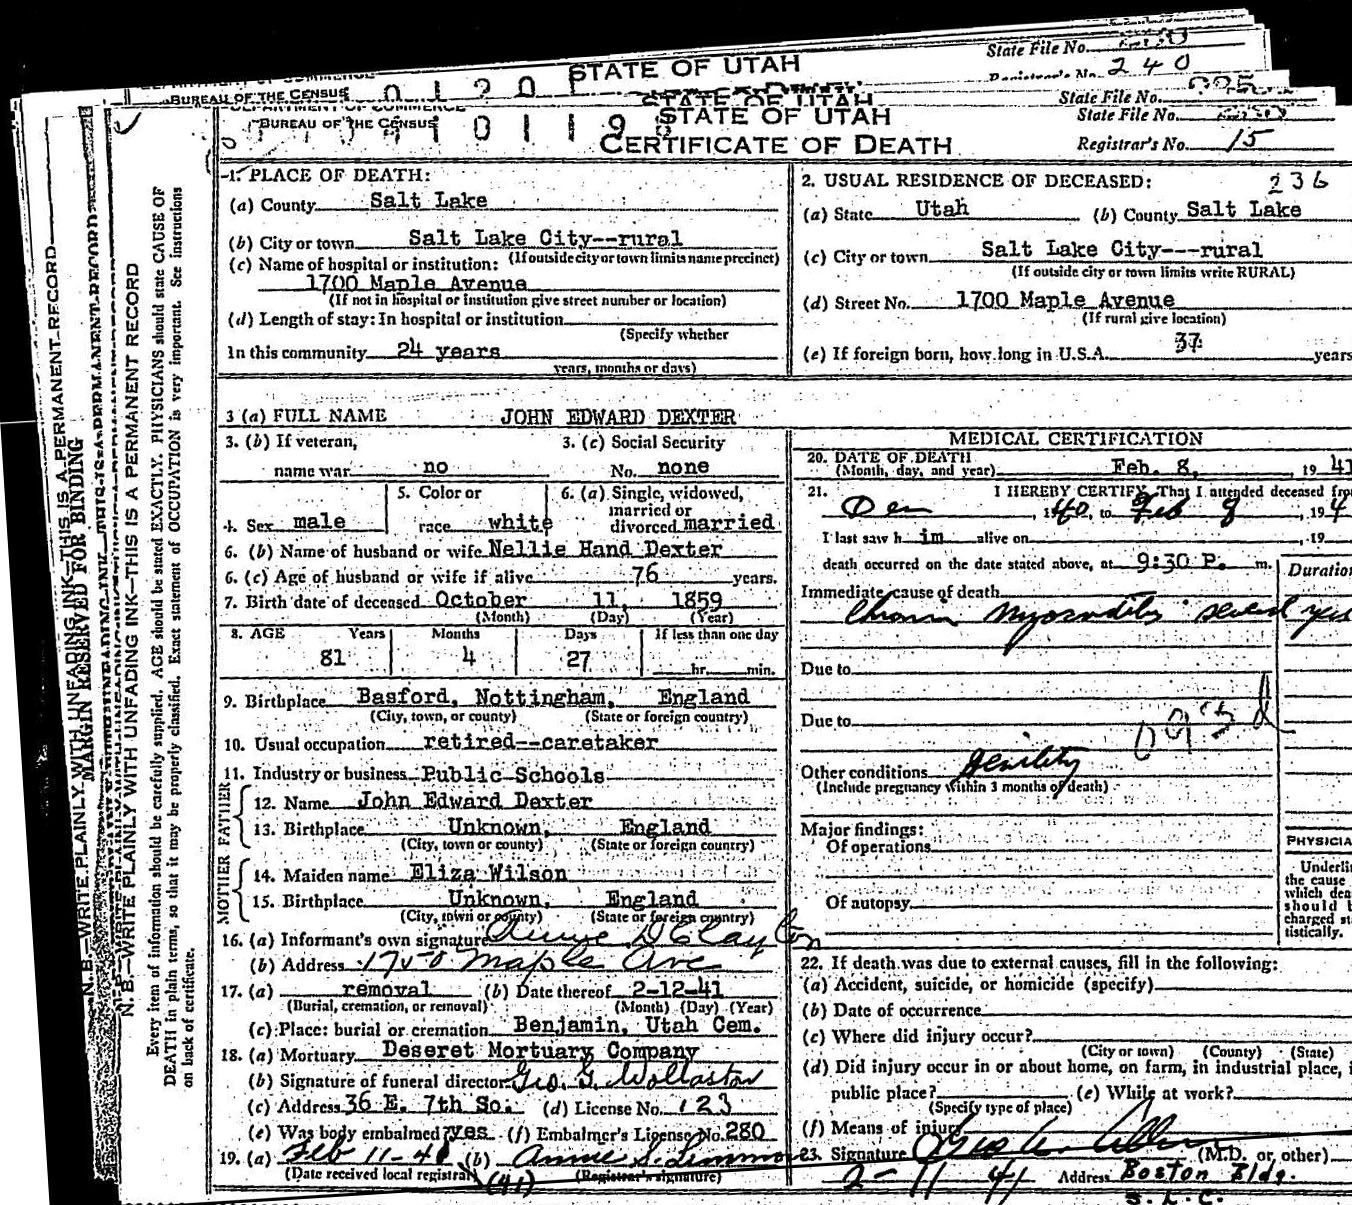 State File No.
STATE OF UTAH
Registrar's No. 240
BUREAU OF THE CENSUS
State File No.
STATE OF UTAH
BUREAU OF THE CENSUS
STATE OF UTAH
State File No.
CERTIFICATE OF DEATH
Registrar's No. 15
MARGIN RESERVED FOR BINDING
N. B.—WRITE PLAINLY WITH UNFADING INK—THIS IS A PERMANENT RECORD
N. B.—WRITE PLAINLY WITH UNFADING INK—THIS IS A PERMANENT RECORD
Every item of information should be carefully supplied. AGE should be stated EXACTLY. PHYSICIANS should state CAUSE OF
DEATH in plain terms, so that it may be properly classified. Exact statement of OCCUPATION is very important. See instructions
on back of certificate.
1. PLACE OF DEATH:
(a) County Salt Lake
(b) City or town Salt Lake City--rural
(If outside city or town limits name precinct)
(c) Name of hospital or institution:
1700 Maple Avenue
(If not in hospital or institution give street number or location)
(d) Length of stay: In hospital or institution
(Specify whether
In this community 24 years
years, months or days)
2. USUAL RESIDENCE OF DECEASED: 236
(a) State Utah (b) County Salt Lake
(c) City or town Salt Lake City---rural
(If outside city or town limits write RURAL)
(d) Street No. 1700 Maple Avenue
(If rural give location)
(e) If foreign born, how long in U.S.A. 37 years
3 (a) FULL NAME JOHN EDWARD DEXTER
3. (b) If veteran,
name war no
3. (c) Social Security
No. none
4. Sex male
5. Color or
race white
6. (a) Single, widowed,
married or
divorced married
6. (b) Name of husband or wife Nellie Hand Dexter
6. (c) Age of husband or wife if alive 76 years.
7. Birth date of deceased October 11, 1859
(Month) (Day) (Year)
8. AGE Years Months Days If less than one day
81 4 27 hr. min.
9. Birthplace Basford, Nottingham, England
(City, town, or county) (State or foreign country)
10. Usual occupation retired--caretaker
11. Industry or business Public Schools
FATHER
12. Name John Edward Dexter
13. Birthplace Unknown, England
(City, town or county) (State or foreign country)
MOTHER
14. Maiden name Eliza Wilson
15. Birthplace Unknown, England
(City, town or county) (State or foreign country)
16. (a) Informant's own signature Annie D Clayton
(b) Address 1750 Maple Ave
17. (a) removal (b) Date thereof 2-12-41
(Burial, cremation, or removal) (Month) (Day) (Year)
(c) Place: burial or cremation Benjamin, Utah Cem.
18. (a) Mortuary Deseret Mortuary Company
(b) Signature of funeral director Geo. G. Wollaston
(c) Address 36 E. 7th So. (d) License No. 123
(e) Was body embalmed? yes (f) Embalmer's License No. 280
19. (a) Feb 11-41 (b) Annie S. Lemmon
(Date received local registrar) (41) (Registrar's signature)
MEDICAL CERTIFICATION
20. DATE OF DEATH
(Month, day, and year) Feb. 8, 1941
21. I HEREBY CERTIFY, That I attended deceased from
Dec, 1940, to Feb 8, 194
I last saw him alive on , 19
death occurred on the date stated above, at 9:30 P. m.
Duration
Immediate cause of death
Chronic Myocarditis several yrs
Due to
Due to
093d
Other conditions Senility
(Include pregnancy within 3 months of death)
Major findings:
Of operations
Of autopsy
PHYSICIA
Underli
the cause
which dea
should b
charged sta
tistically.
22. If death was due to external causes, fill in the following:
(a) Accident, suicide, or homicide (specify)
(b) Date of occurrence
(c) Where did injury occur?
(City or town) (County) (State)
(d) Did injury occur in or about home, on farm, in industrial place, i
public place? (e) While at work?
(Specify type of place)
(f) Means of injury
23. Signature (M.D. or other)
2-11 41 Address Boston Bldg.
S. L. C.